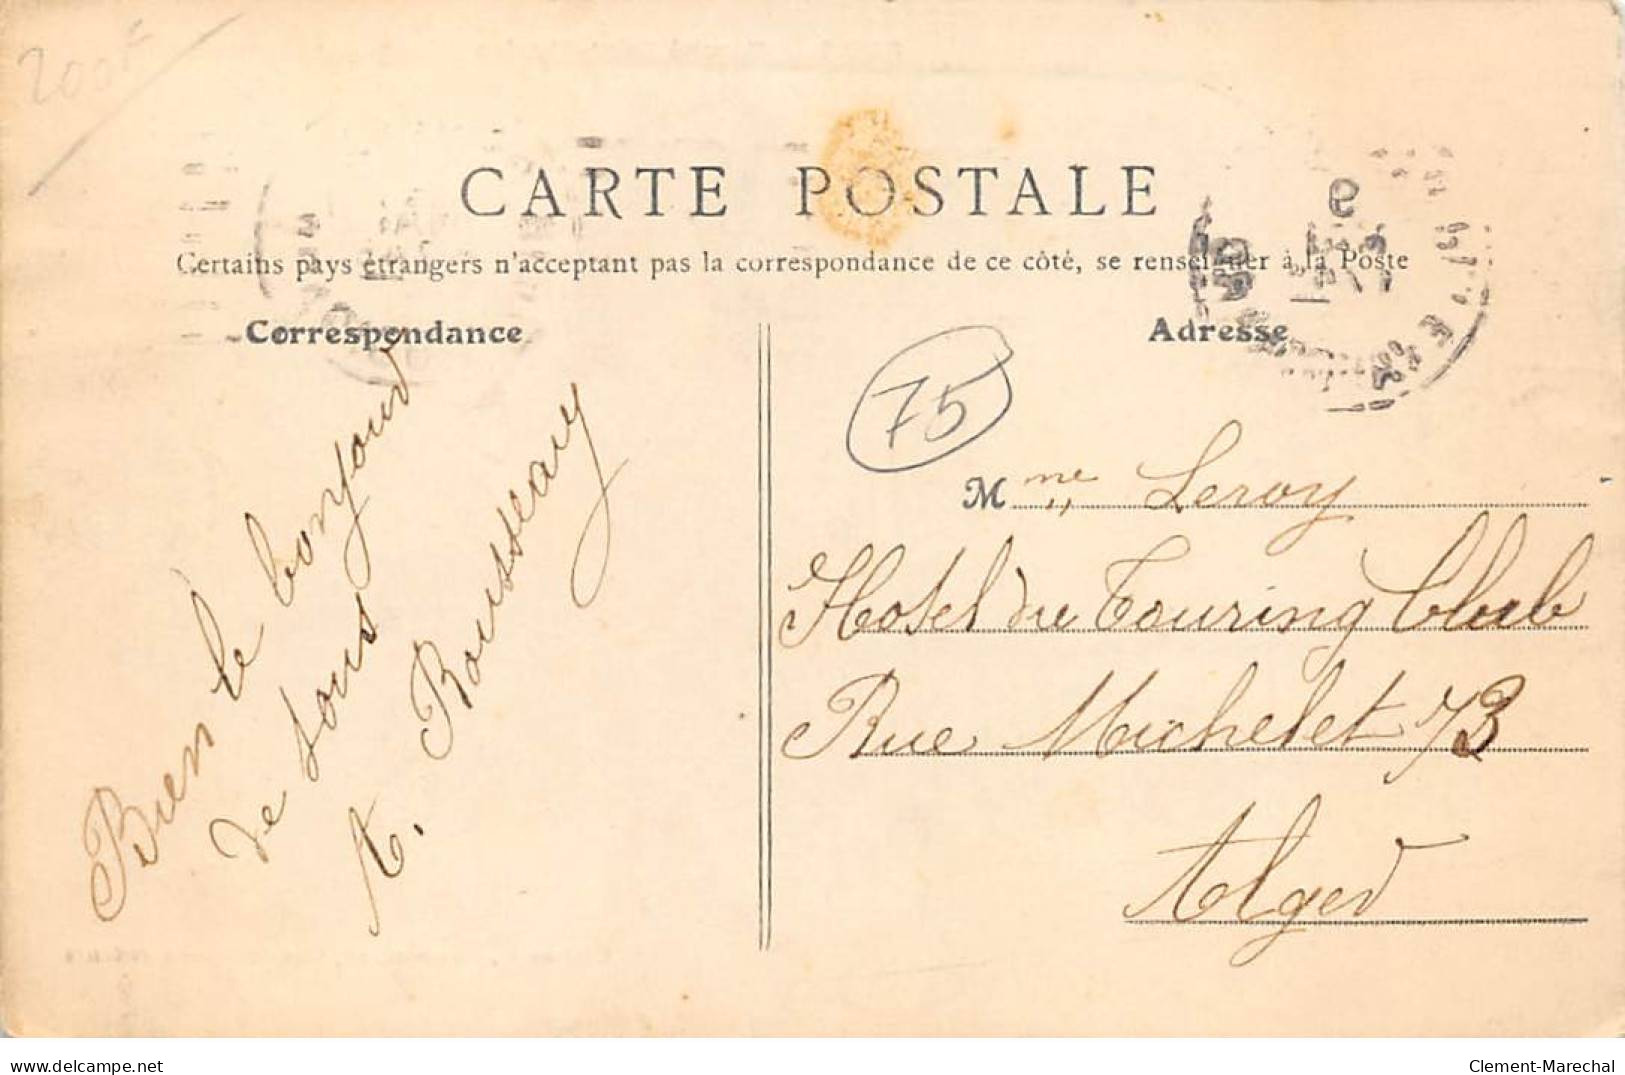 200F
CARTE POSTALE
Certains pays étrangers n'acceptant pas la correspondance de ce côté, se renseigner à la Poste
Correspondance
Bien le bonjour
de tous
A. Rousseau
Adresse
75
Mme Leroy
Hotel du Touring Club
Rue Michelet 73
Alger
www.delcampe.net
Clement-Marechal